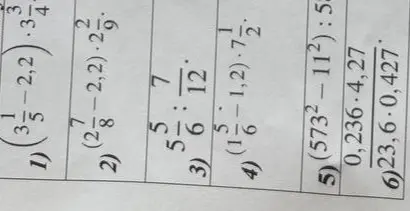 1) (3 1/5 − 2,2) · 3 3/4
2) (2 7/8 − 2,2) · 2 2/9.
3) 5 5/6 : 7/12.
4) (1 5/6 − 1,2) · 7 1/2.
5) (573² − 11²) :
6) 0,236 · 4,27 / 23,6 · 0,427.